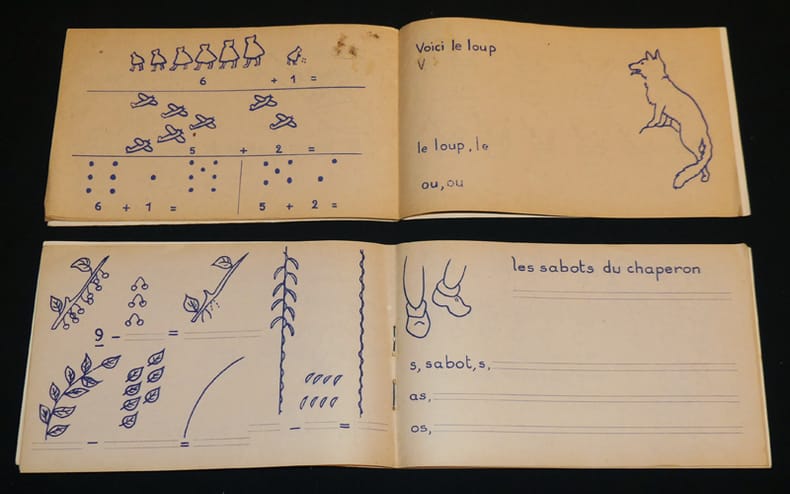 6 + 1 =
5 + 2 =
6 + 1 =
5 + 2 =
Voici le loup
V
le loup, le
ou, ou
9 - =
- =
- =
les sabots du chaperon
s, sabot, s,
as,
os,